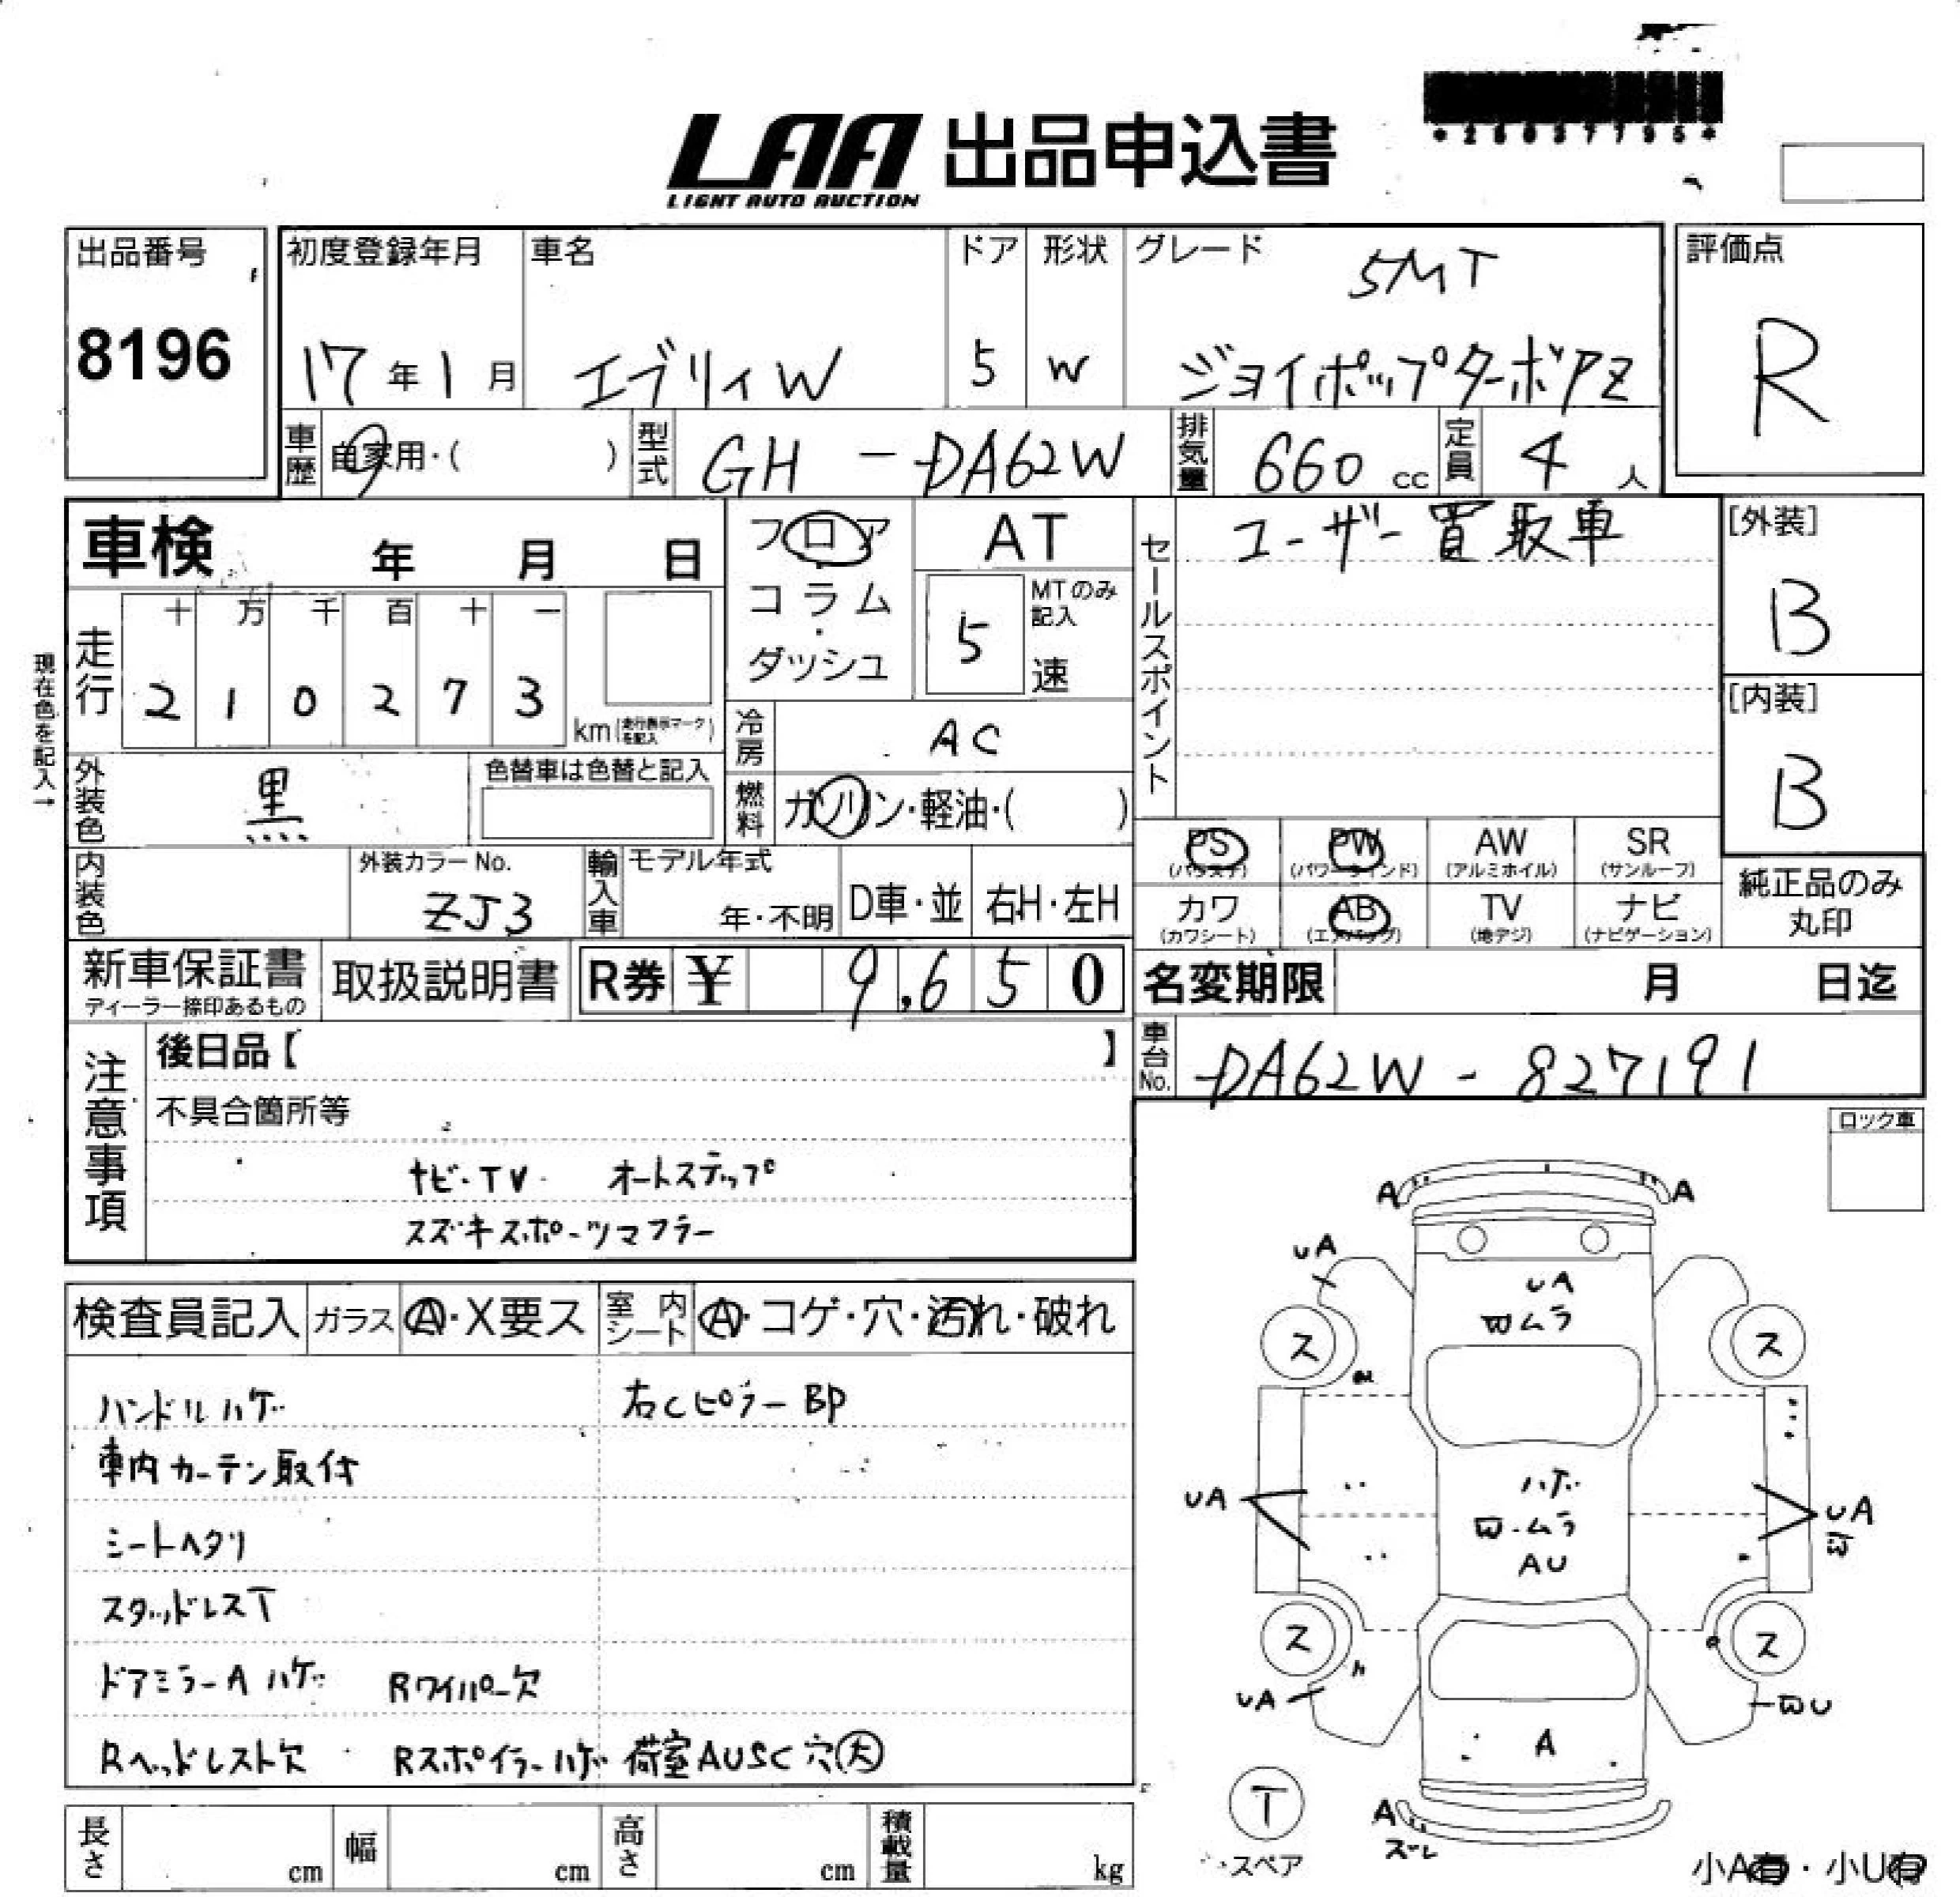 *26037795*
LAA 出品申込書
LIGHT AUTO AUCTION
出品番号
8196
初度登録年月
17年1月
車名
エブリィW
ドア
5
形状
W
グレード
5MT
ジョイポップターボPZ
評価点
R
車歴 自家用・( )
型式 GH-DA62W
排気量 660 cc
定員 4人
車検 年 月 日
走行
十 万 千 百 十 一
2 1 0 2 7 3 km(走行表示マークを記入)
現在色を記入→
外装色 黒
色替車は色替と記入
内装色
外装カラーNo.
ZJ3
フロア
コラム
・
ダッシュ
AT
5 MTのみ記入
速
冷房 AC
燃料 ガソリン・軽油・( )
輸入車 モデル年式
年・不明 D車・並 右H・左H
セールスポイント
ユーザー買取車
[外装]
B
[内装]
B
PS (パワステ)
PW (パワーウインド)
AW (アルミホイル)
SR (サンルーフ)
カワ (カワシート)
AB (エアバッグ)
TV (地デジ)
ナビ (ナビゲーション)
純正品のみ
丸印
新車保証書
ディーラー捺印あるもの
取扱説明書
R券 ¥ 9,650
名変期限 月 日迄
車台No. DA62W-827191
注意事項
後日品【 】
不具合箇所等
ナビ・TV オートステップ
スズキスポーツマフラー
ロック車
検査員記入 ガラス A・X要ス 室内シート A・コゲ・穴・汚れ・破れ
ハンドルハゲ 右CピラーBP
車内カーテン取付
シートヘタリ
スタッドレスT
ドアミラーAハゲ Rワイパー欠
Rヘッドレスト欠 Rスポイラーハゲ 荷室AUSC穴大
A A
UA
UA
ムラ
ス ス
UA
ハゲ
ムラ
AU
UA
ス ス
UA
U
A
T
スペア
A
ズレ
小A有・小U有
長さ cm 幅 cm 高さ cm 積載量 kg